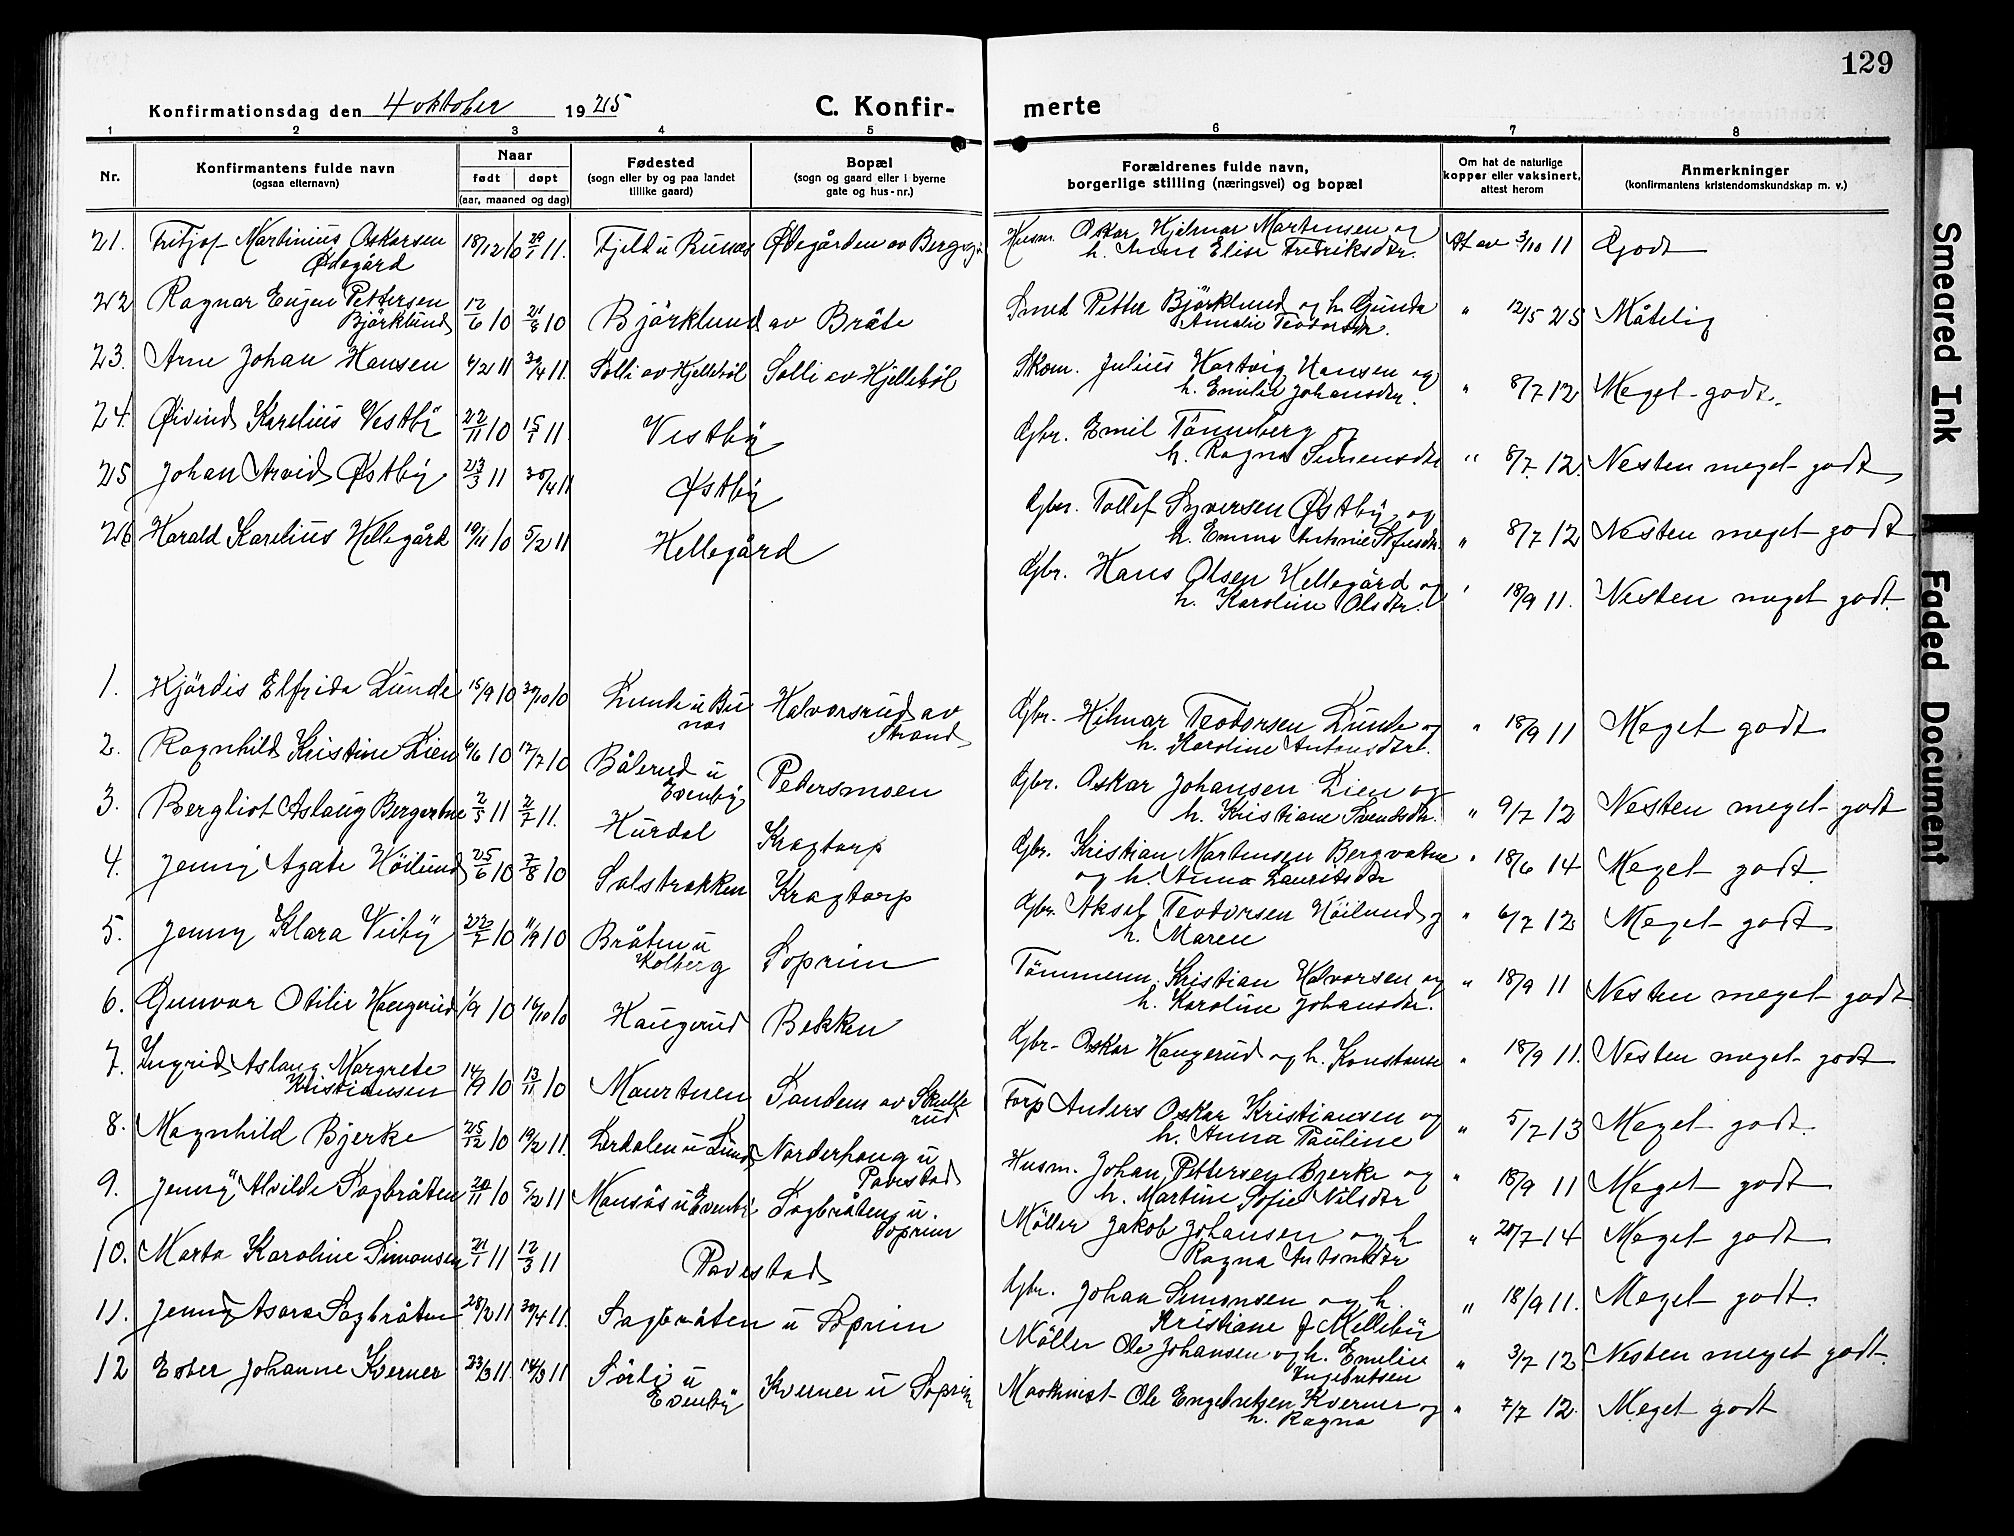 129
Konfirmationsdag den 4 oktober 1925
C. Konfir-
merte
1 2 3 4 5 6 7 8
Nr.
Konfirmantens fulde navn
(ogsaa efternavn)
Naar
født døpt
(aar, maaned og dag)
Fødested
(sogn eller by og paa landet
tillike gaard)
Bopæl
(sogn og gaard eller i byerne
gate og hus-nr.)
Forældrenes fulde navn,
borgerlige stilling (næringsvei) og bopæl
Om hat de naturlige
kopper eller vaksinert,
attest herom
Anmerkninger
(konfirmantens kristendomskundskap m. v.)
21. Fritjof Martinius Oskarsen
Ødegård
18/12 10 29/1 11. Fjeld u Bunæs Ødegården av Bergsj
Husm. Oskar Hjelmar Martinsen og
h. Anne Elise Fredriksdtr. At av 3/10 11 Godt
22 Ragnar Eugen Pettersen
Björklund
12/6 10 21/8 10 Björklund av Bråte
Smed Petter Björklund og h. Gunda
Amalie Teodorsdtr. " 12/5 25 Måtelig
23. Arne Johan Hansen 6/2 11 30/4 11. Solli av Hjellebøl Solli av Hjellebøl
Skom. Julius Hartvig Hansen og
h. Emilie Johansdtr. " 8/7 12 Meget godt.
24. Øivind Karelius Vestby 22/11 10 15/1 11. Vestby
Gbr. Emil Tönneberg og
h. Ragna Simensdtr " 8/7 12. Nesten meget godt
25 Johan Arvid Østby 23/3 11 30/4 11 Østby
Gbr. Tollef Syversen Østby og
h. Emma Antonie " 8/7 12 Nesten meget godt
26 Harald Karelius Hellegård 19/11 10 5/2 11 Hellegård
Gbr. Hans Olsen Hellegård og
h. Karoline Olsdtr. " 18/9 11. Nesten meget godt.
1. Hjördis Elfrida Lunde 15/9 10 30/10 10 Lunde u Bu
næs Halvorsrud av
Strand
Gbr. Hilmar Teodorsen Lunde og
h. Karoline Antonsdtr. " 18/9 11 Meget godt
2. Ragnhild Kristine Lien 6/6 10 17/7 10 Bålerud u
Evenby Pedersmoen
Gbr. Oskar Johansen Lien og
h. Kristiane Svendsdtr. " 9/7 12 Nesten meget godt
3. Bergliot Aslaug Bergvatne 2/5 11 2/7 11. Hurdal Kragtorp
Gbr. Kristian Martinsen Bergvatne
og h. Anna Lauritsdtr " 18/6 14 Meget godt.
4. Jenny Agate Höilund 25/6 10 7/8 10 Salstrakken Kragtorp
Gbr. Aksel Teodorsen Höilund og
h. Maren " 6/7 12 Meget godt
5. Jenny Klara Viby 22/7 10 11/9 10 Bråten u
Kolberg Soprim
Tömmerm. Kristian Halvorsen og
h. Karoline Johansdtr. " 18/9 11 Nesten meget godt
6. Gunvor Otilie Haugerud 1/9 10 16/10 10 Haugerud Bekken
Gbr. Oskar Haugerud og h. Konstanse " 18/9 11. Nesten meget godt
7. Ingrid Aslaug Margrete
Kristiansen 14/9 10 13/11 10 Maurtuen Sandem av Skulle
rud
Forp Anders Oskar Kristiansen og
h. Anna Pauline " 5/7 13 Meget godt.
8. Magnhild Bjerke 25/12 10 19/2 11. Lerdalen u Lund Norderhaug u
Pavestad
Husm. Johan Pettersen Bjerke og
h. Martine Sofie Nilsdtr " 18/9 11 Meget godt
9. Jenny Alvilde Sagbråten 20/11 10 5/2 11 Mansås u Evenby Sagbråten u.
Soprim
Möller Jakob Johansen og h
Ragna Antonsdtr " 20/7 14 Meget godt
10. Marta Karoline Simonsen 21/1 11 12/3 11 Pavestad
Gbr. Johan Simonsen og h.
Kristiane f Melleby " 18/9 11. Meget godt.
11. Jenny Asora Sagbråten 28/2 11 30/4 11. Sagbråten u Soprim
Möller Ole Johansen og h. Emilie
Ingebretsen " 3/7 12 Nesten meget godt.
12 Ester Johanne Kverner 23/3 11. 14/3 11 Sörli u
Evenby Kverner u Soprim
Maskinist Ole Engebretsen Kverner og
h. Ragna " 7/7 12. Meget godt
Smeared Ink
Faded Document